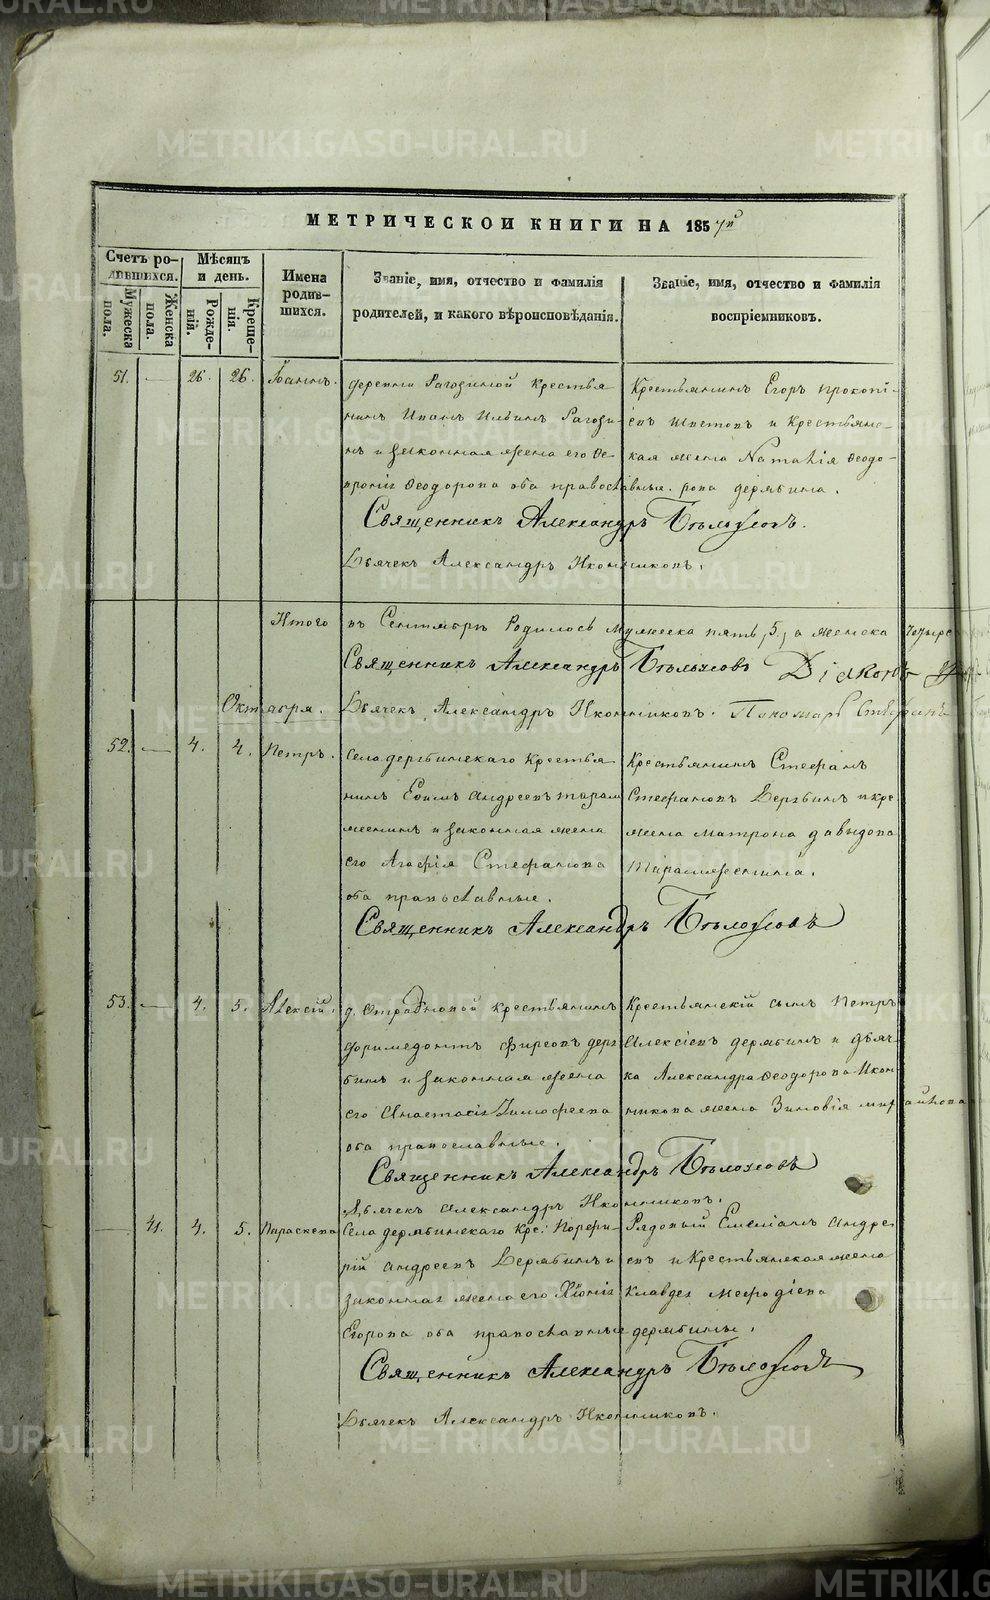 МЕТРИЧЕСКОЙ КНИГИ НА 1857й
Счетъ родившихся.
Мужеска пола.
Женска пола.
Мѣсяцъ и день.
Рожденія.
Крещенія.
Имена родившихся.
Званіе, имя, отчество и фамилія родителей, и какого вѣроисповѣданія.
Званіе, имя, отчество и фамилія воспріемниковъ.
51. — 26. 26. Іоаннъ.
деревни Рагозиной крестья
нинъ Иванъ Ильинъ Рагози
нъ и законная жена его Фе
вронія Феодорова оба православные.
Крестьянинъ Егоръ Прокопі-
евъ и Крестьянс-
кая жена Наталія Феодо-
рова дерябина.
Священникъ Александръ Бѣлоусовъ.
Дьячекъ Александръ Иконниковъ.
Итого въ Сентябрѣ Родилось Мужеска пять, 5, а женска четыре
Священникъ Александръ Бѣлоусовъ Діяконъ
Дьячекъ Александръ Иконниковъ. Пономарь Стефанъ
Октября.
52. — 4. 4. Петръ.
Села дерябинскаго Крестья
нинъ Ефимъ Андреевъ Тарам
женинъ и законная жена
его Агафія Стефанова
оба православные.
Крестьянинъ Стефанъ
Стефановъ Дерябинъ и кре
жена Матрона давыдова
Тарамженина.
Священникъ Александръ Бѣлоусовъ
53. — 4. 5. Алексій.
д. Отрадновой крестьянинъ
Доримедонтъ Фирсовъ деря
бинъ и законная жена
его Анастасія Тимофеева
оба православные.
Крестьянскій сынъ Петръ
Алексіевъ дерябинъ и дьяч
ка Александра Феодорова Икон
никова жена Зиновія михайлова
Священникъ Александръ Бѣлоусовъ
Дьячекъ Александръ Иконниковъ.
— 41. 4. 5. Параскева
Села дерябинскаго Кре. Порфи
рій Андреевъ Дерябинъ и
законная жена его Хіонія
Егорова оба православные
Рядовый Емеліанъ Андре
евъ и Крестьянская жена
Клавдея Мефодіева
дерябины.
Священникъ Александръ Бѣлоусовъ
Дьячекъ Александръ Иконниковъ.
METRIKI.GASO-URAL.RU